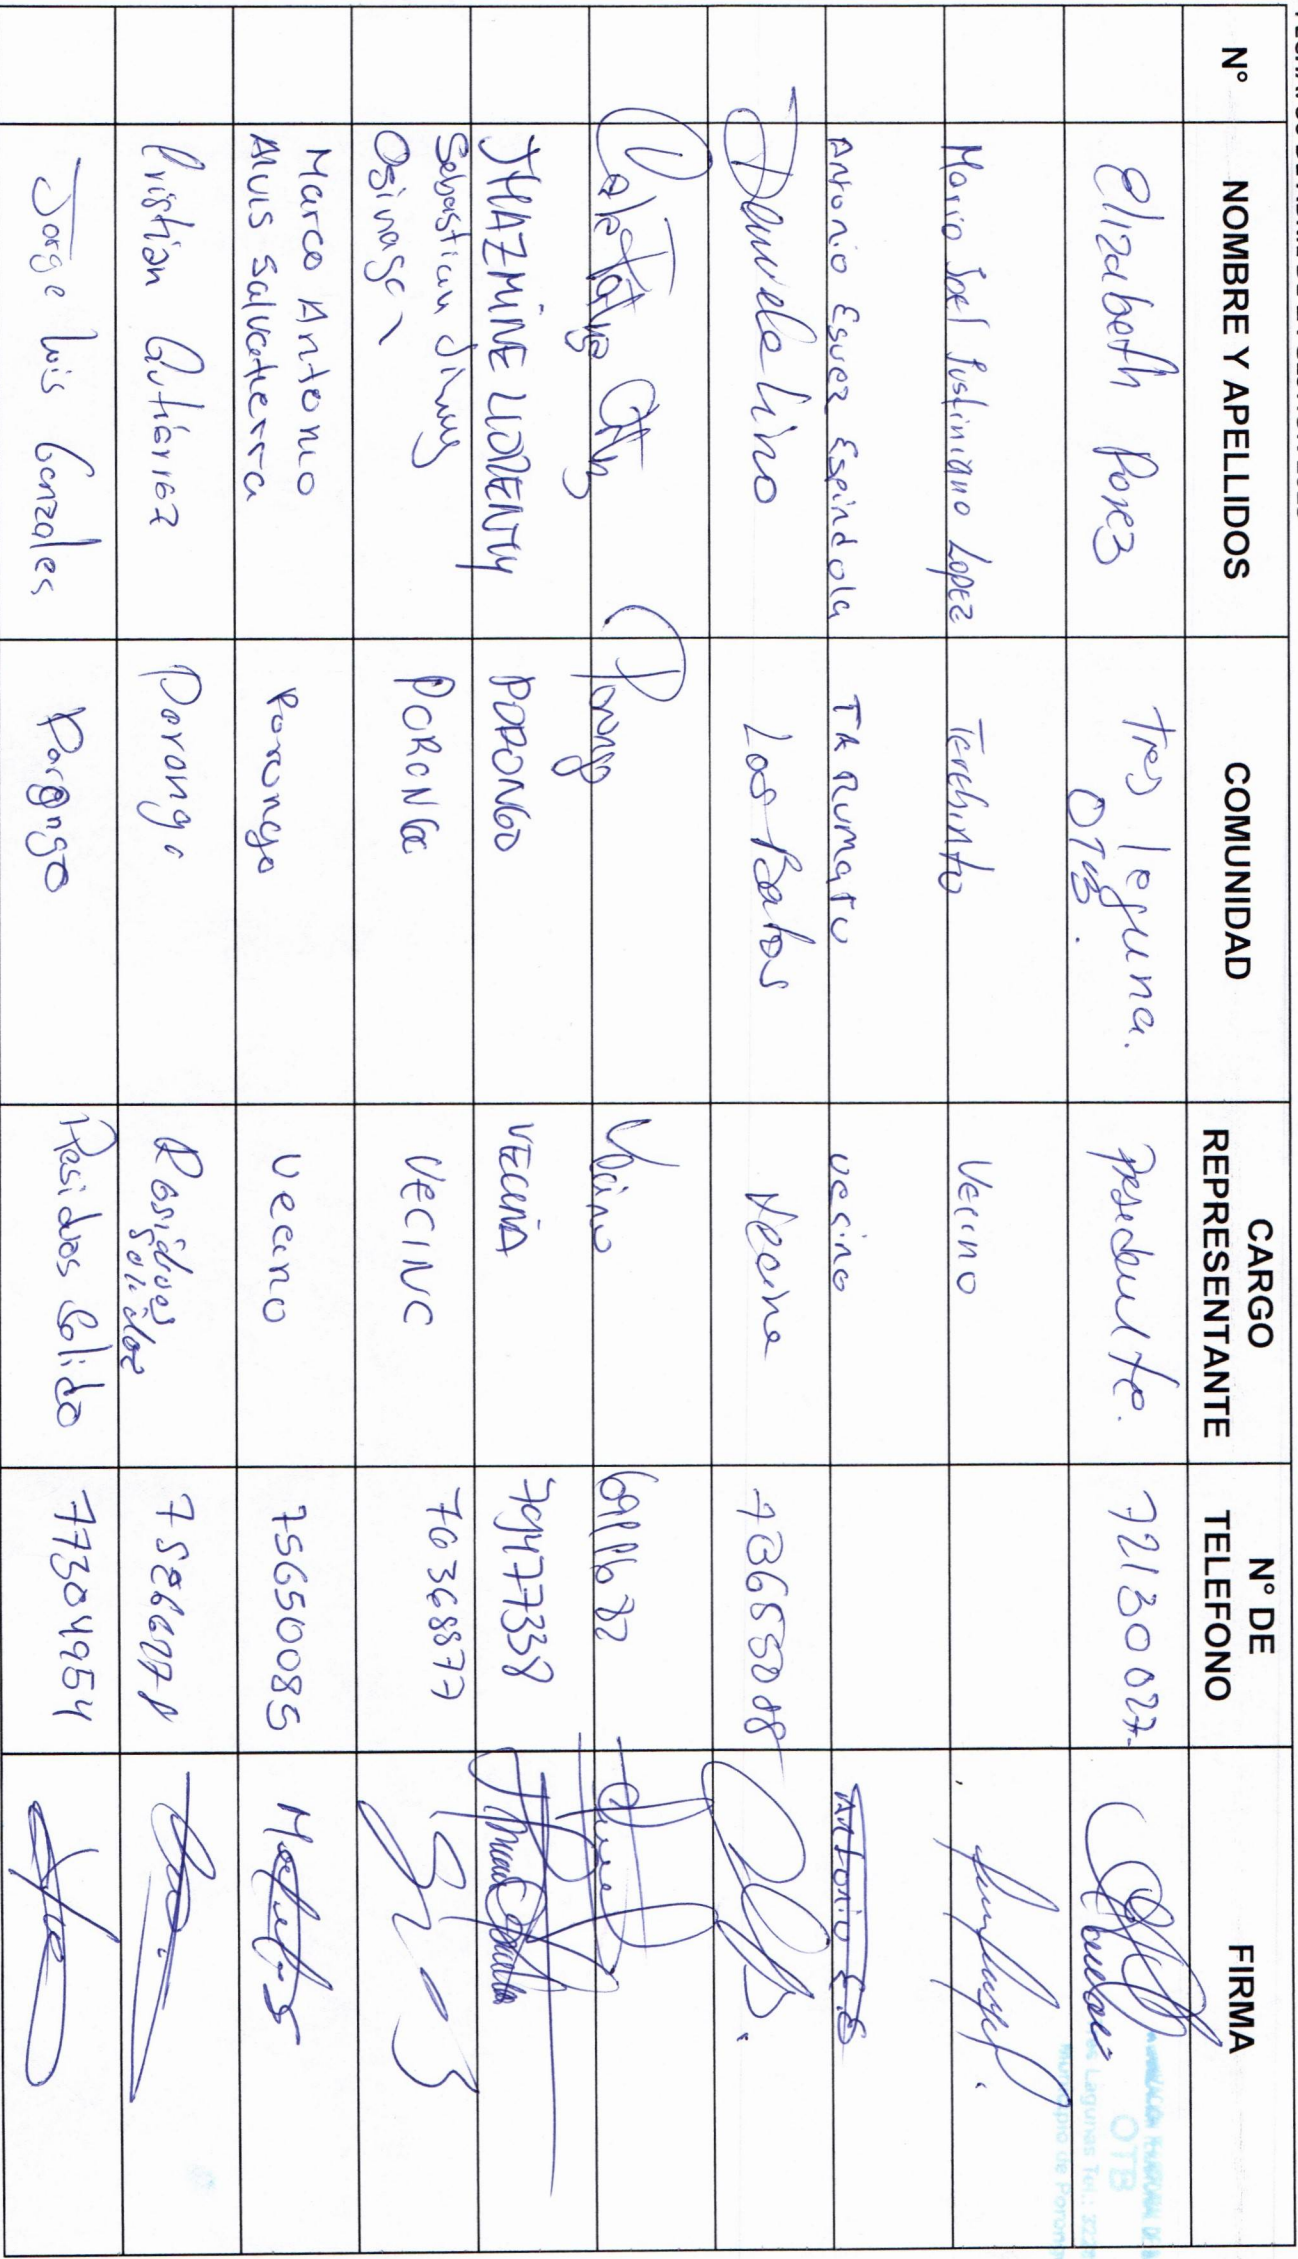 N° NOMBRE Y APELLIDOS COMUNIDAD CARGO REPRESENTANTE N° DE TELEFONO FIRMA
Elizabeth Perez Tres laguna. OTB. Presidente. 72130027
Mario Joel Justiniano Lopez Terebinto Vecino
Antonio Esuez Espindola TARUMATU vecino ANTONIO E.E
Daniela Lino Los Batos Vecina
Porongo Vecino
JHAZMINE LLORENTTY PORONGO VECINA
Sebastian Jimmy Osinaga PORONGO VECINO 76368877
Marco Antonio Alvis Salvatierra Porongo Vecino 75650085
Cristian Gutiérrez Porongo Residuos Solidos
Jorge Luis Gonzales Porongo Residuos Solido 77304954
OTB
Lagunas Tel.:
Municipio de Porongo